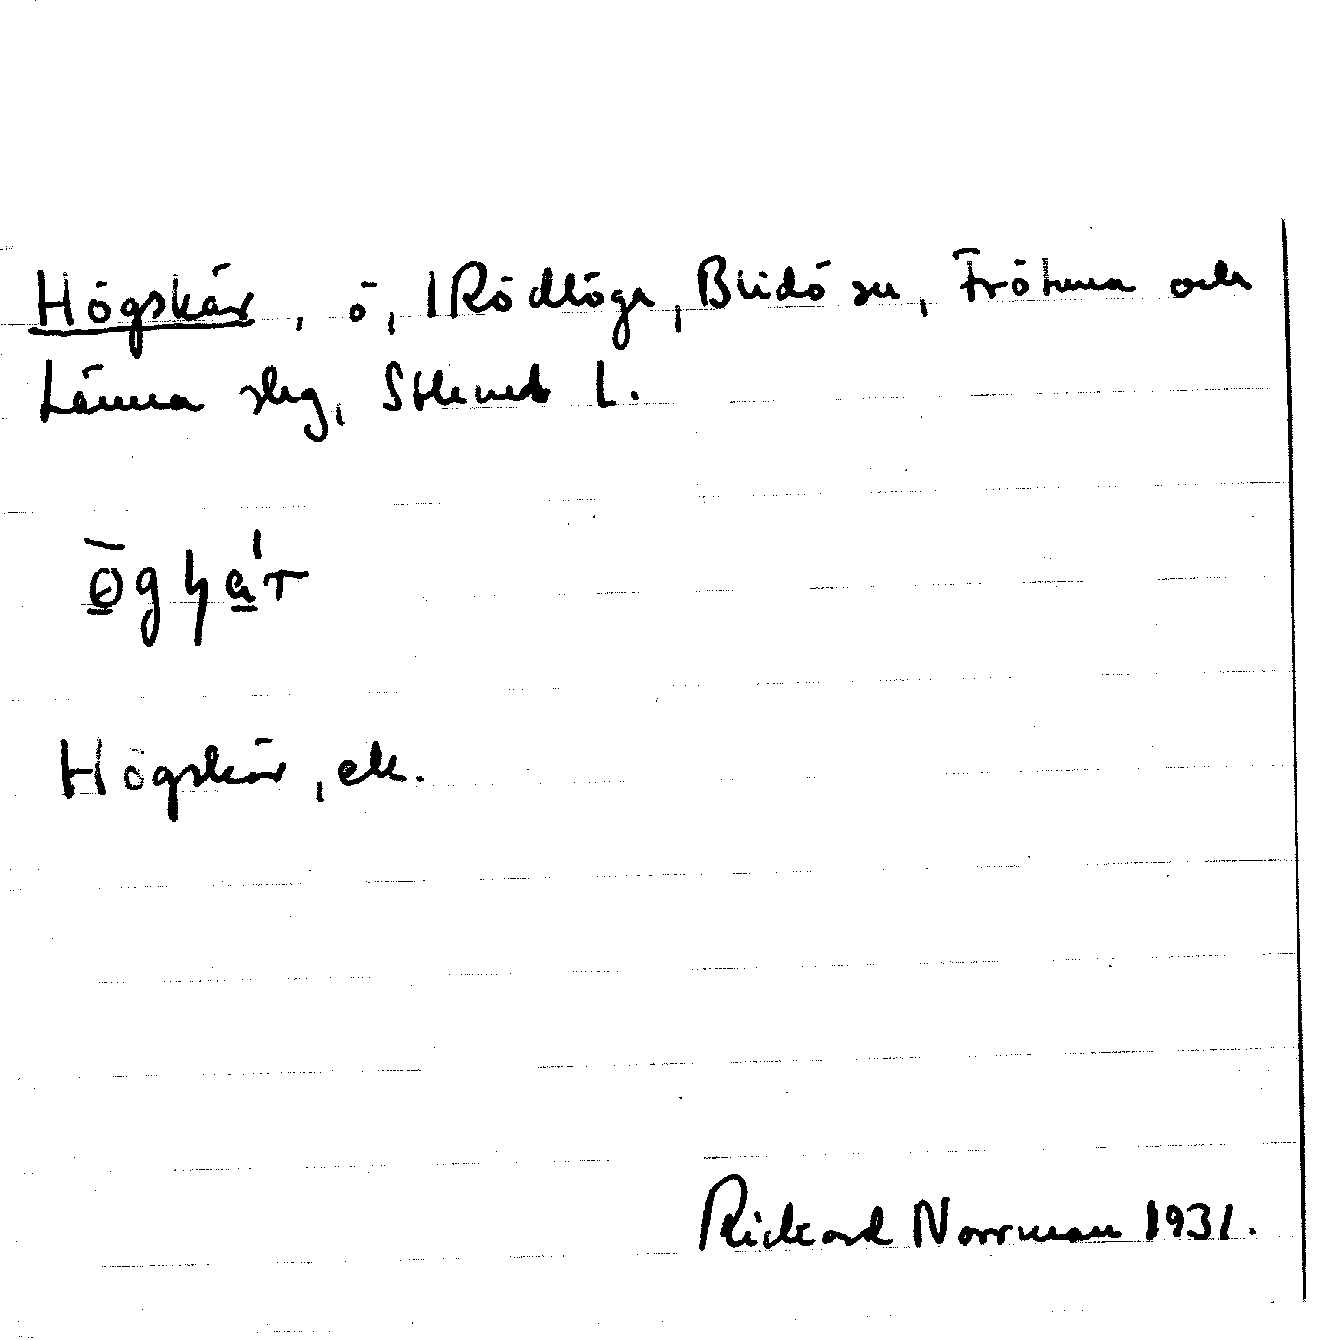 Högskär, ö, 1 Rödlöga, Blidö sn, Frötuna och
Länna slg, Sthlms L.
Högskär, ek.
Rickard Norrman 1931.